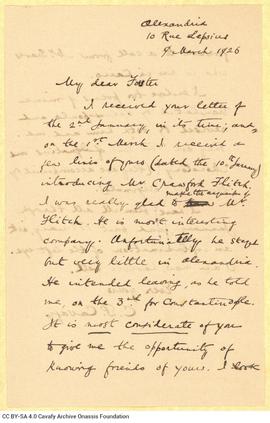 Alexandria
10 Rue Lepsius
9 March 1926
My dear Forster
I received your letter of
the 2nd January, in its time; and,
on the 1st March I received a
few lines of yours (dated the 10th January)
introducing Mr Crawford Flitch.
make the acquaintance of
I was really glad to Mr
Flitch. It is most interesting
company. Unfortunately he stayed
but very little in Alexandria.
He intended leaving, as he told
me, on the 3rd for Constantinople.
It is most considerate of you
to give me the opportunity of
knowing friends of yours. I look
CC BY-SA 4.0 Cavafy Archive Onassis Foundation